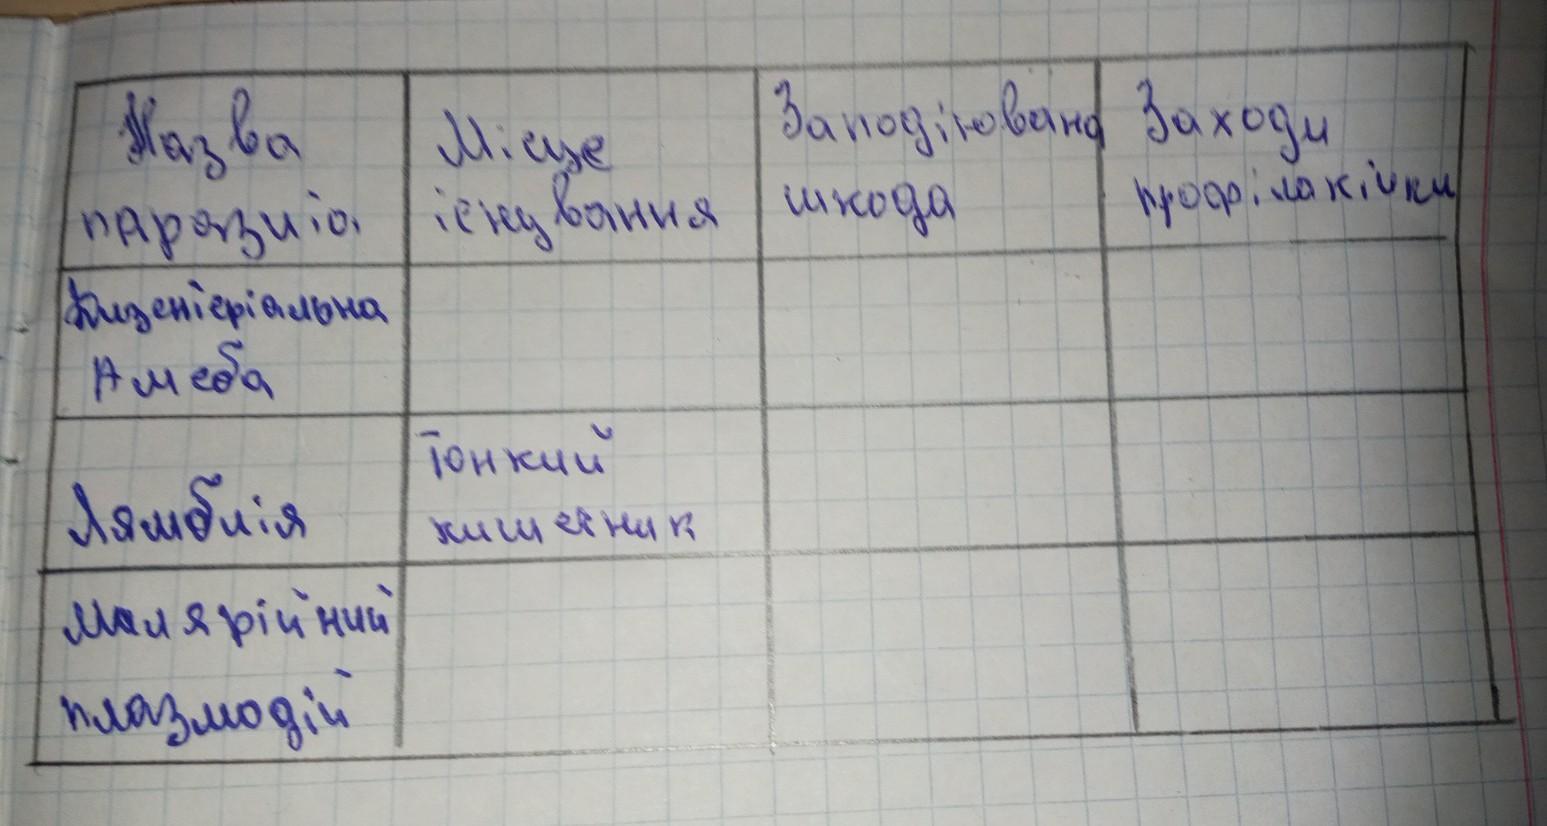 Назва
паразита
Місце
існування
Заподіювана
шкода
Заходи
профілактики
Дизентеріальна
Амеба
Лямблія
Тонкий
кишечник
Малярійний
плазмодій